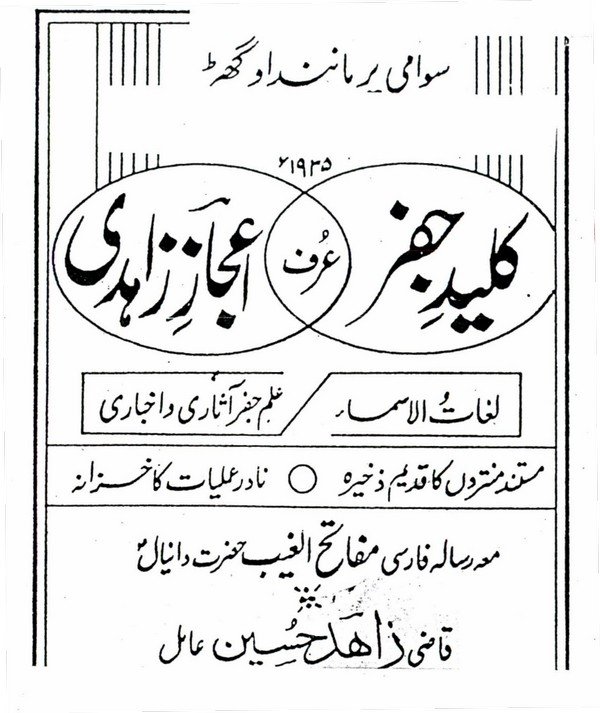 سوامی پرمانند اوگھڑ
۱۹۳۵ء
کلیدِ جفر عُرف اعجازِ زاہدی
لغاتُ الاسماء علمِ جفر آثاری و اخباری
مستند منتروں کا قدیم ذخیرہ ○ نادر عملیات کا خزانہ
معہ رسالہ فارسی مفاتح الغیب حضرت دانیالؑ
قاضی زاھد حُسین عامل